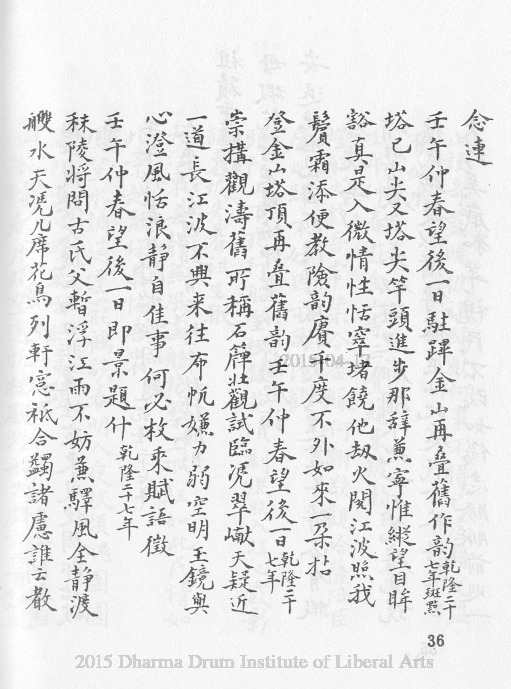 念連
壬午仲春望後一日駐蹕金山再疊舊作韵乾隆二十七年
塔已山尖又塔尖竿頭進步那辭兼寧惟縱望目眸
豁真是入微情性恬窣堵饒他刼火閱江波照我
鬢霜添便教險韵賡千度不外如來一朶拈
登金山塔頂再疊舊韵壬午仲春望後一日乾隆二十七年
崇搆觀濤舊所稱石簰壯觀試臨凴翠巘天疑近
一道長江波不興来往布帆嫌力弱空明玉鏡與
心澄風恬浪靜自佳事何必枚乘賦語徵
壬午仲春望後一日即景題什乾隆二十七年
秣陵將問古氏父暫浮江雨不妨蕪驛風全静渡
艭水天凴几席花鳥列軒窓袛合蠲諸慮誰云教
36
2015 Dharma Drum Institute of Liberal Arts